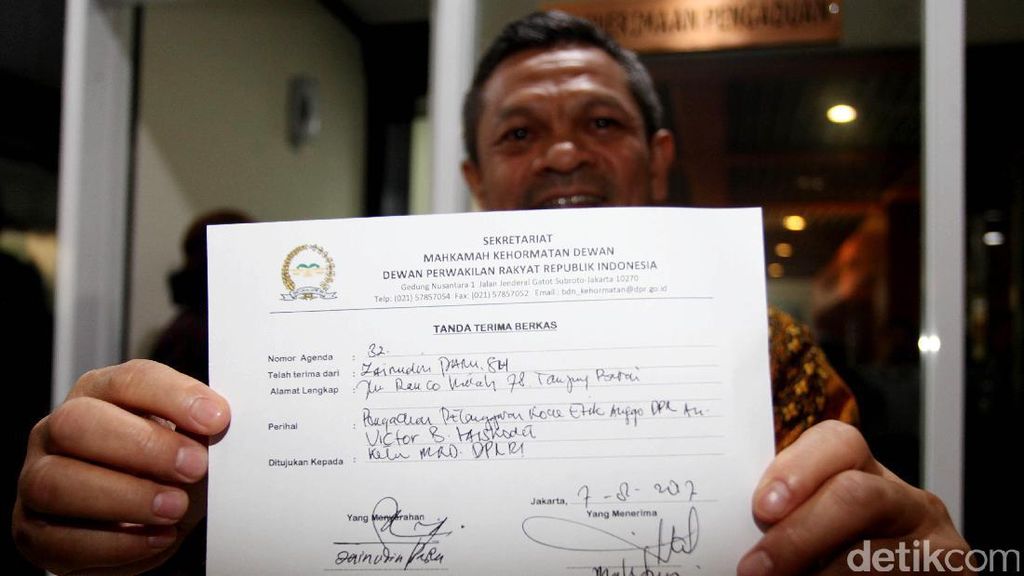 PENERIMAAN PENGADUAN
SEKRETARIAT
MAHKAMAH KEHORMATAN DEWAN
DEWAN PERWAKILAN RAKYAT REPUBLIK INDONESIA
Gedung Nusantara 1 Jalan Jenderal Gatot Subroto-Jakarta 10270
Telp: (021) 57857054 Fax: (021) 57857052 Email : bdn_kehormatan@dpr.go.id
TANDA TERIMA BERKAS
Nomor Agenda : 32.
Telah terima dari : Zainudin PARU.SH
Alamat Lengkap : Indah 78 Tanjung
Perihal : Pengaduan Pelanggaran Kode Etik Anggo DPR An.
Victor B. Laiskodat
Ditujukan Kepada : Ketua MKD. DPR RI
Jakarta, 7-8-2017
Yang Menyerahkan Yang Menerima
Zainudin Paru
detikcom